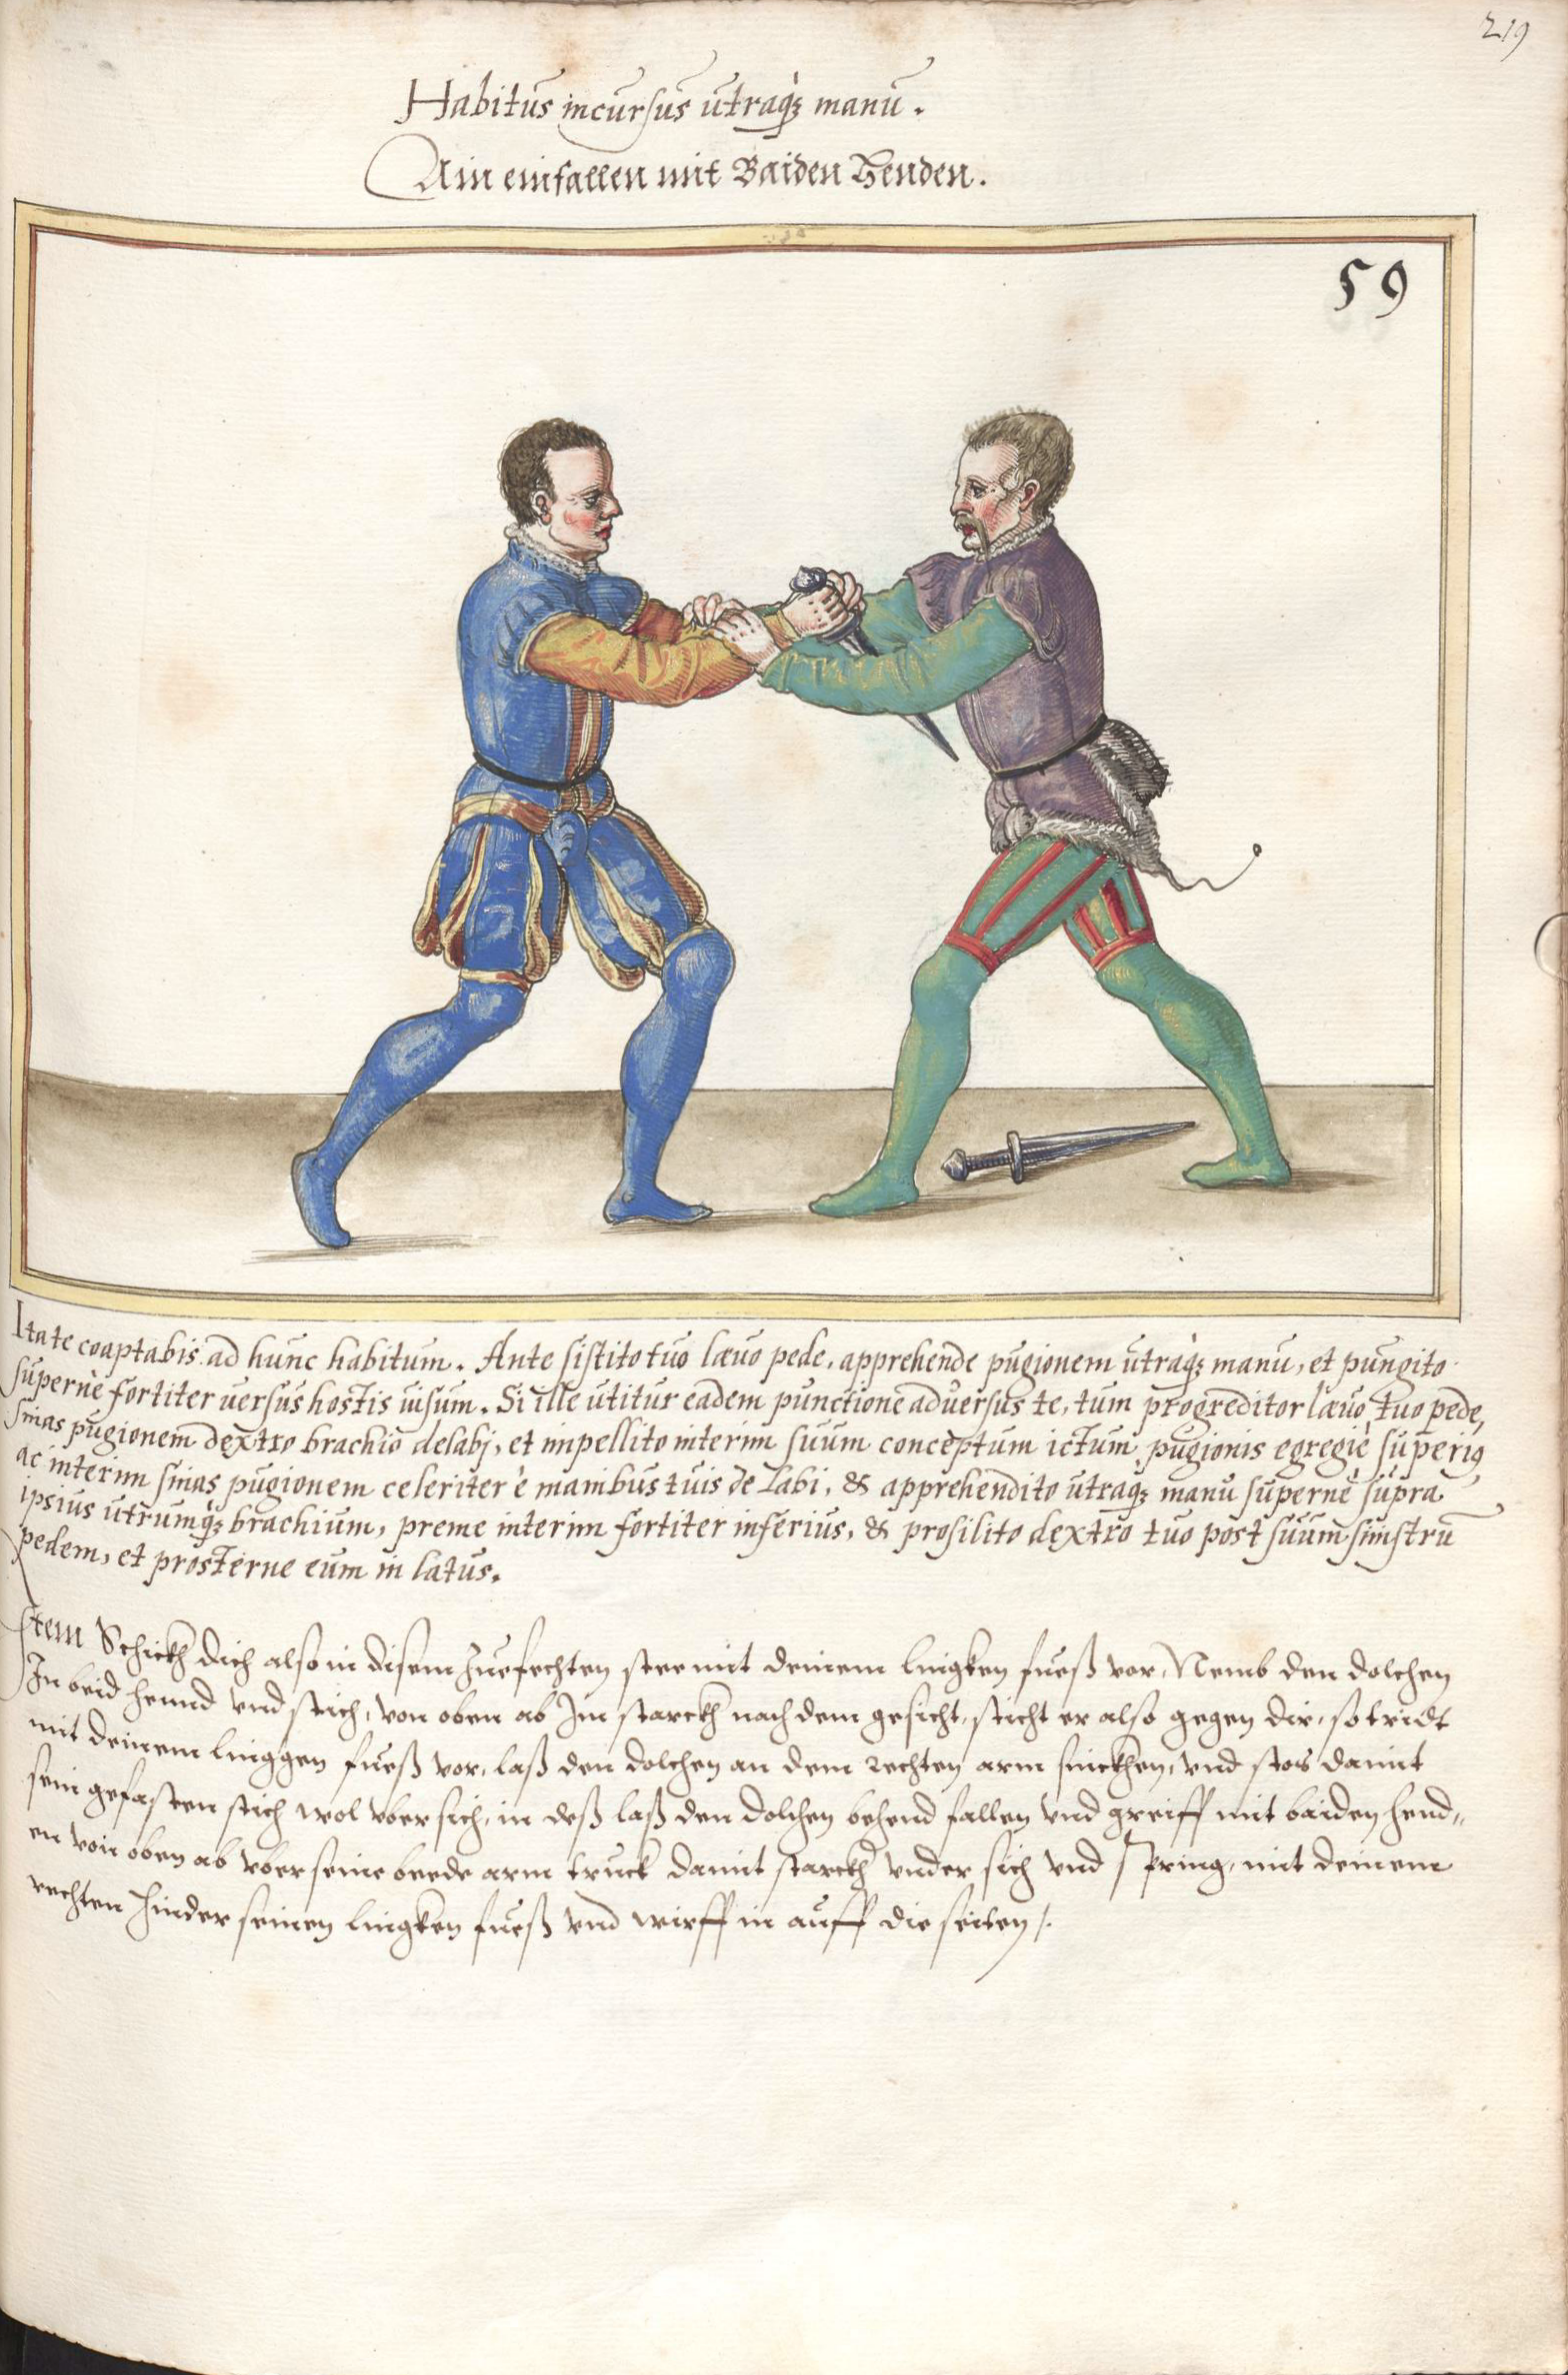 219
Habitus incursus utraqȝ manu.
Ain einfallen mit Baiden Henden.
59
Ita te coaptabis ad hunc habitum. Ante sistito tuo lævo pede, apprehende pugionem utraqȝ manu, et pungito
superne fortiter versus hostis visum. Si ille utitur eadem punctione adversus te, tum progreditor lævo tuo pede,
sinas pugionem dextro brachio delabj, et impellito interim suum conceptum ictum pugionis egregie superiꝰ
ac interim sinas pugionem celeriter è manibus tuis de labi, & apprehendito utraqȝ manu supernè supra
ipsius utrumqȝ brachium, preme interim fortiter inferius, & prosilito dextro tuo post suum sinistrū
pedem, et prosterne eum in latus.
Item Schickh dich also in disem zuefechten stee mit deinem lingken fueß vor, Nemb den dolchen
In beid hennd vnd stich, von oben ab Im starckh nach dem gesicht, sticht er also gegen dir, so tridt
mit deinem linggen fueß vor, laß den dolchen an dem rechten arm sinckhen, vnd stos damit
sein gefasten stich wol vbersich, in deß laß den dolchen behend fallen vnd greiff mit baiden hend„
en von oben ab vber seine beede arm truck damit starckh vnder sich vnd spring, mit deinem
rechten hinder seinen lingken fueß vnd wirff in auff die seiten /.